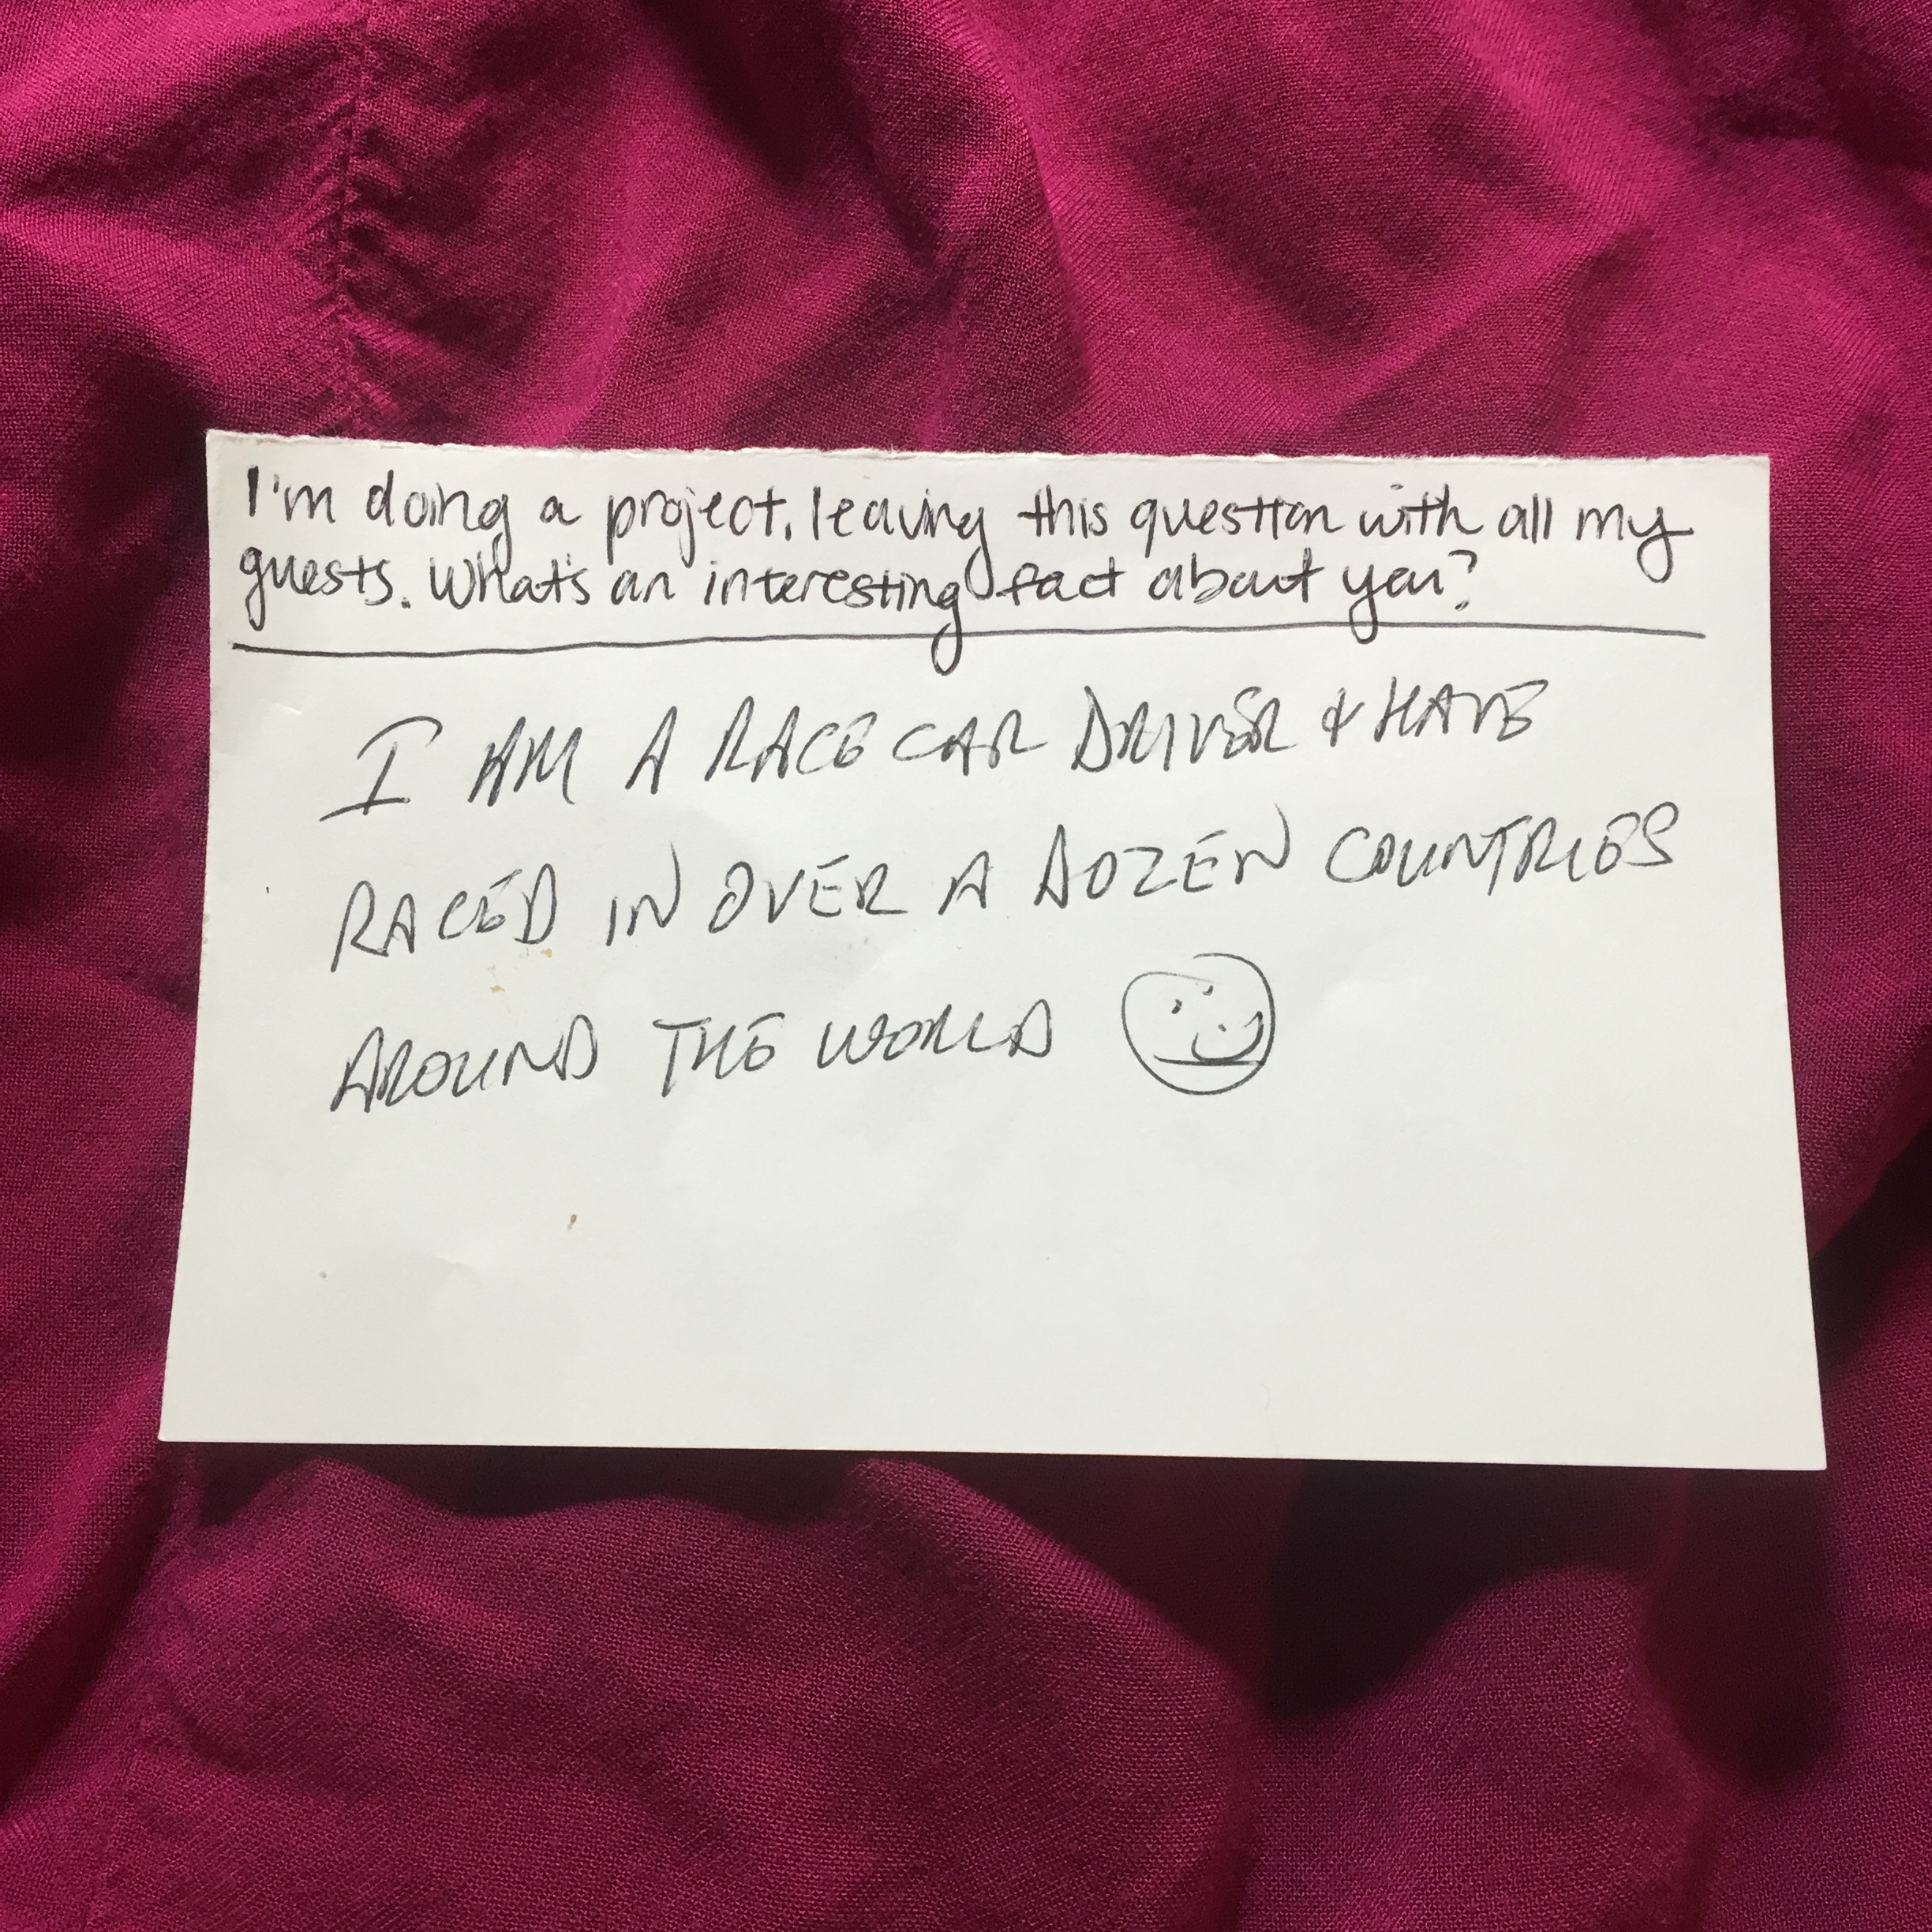 I'm doing a project, leaving this question with all my
guests. What's an interesting fact about you?
I AM A RACE CAR DRIVER & HAVE
RACED IN OVER A DOZEN COUNTRIES
AROUND THE WORLD